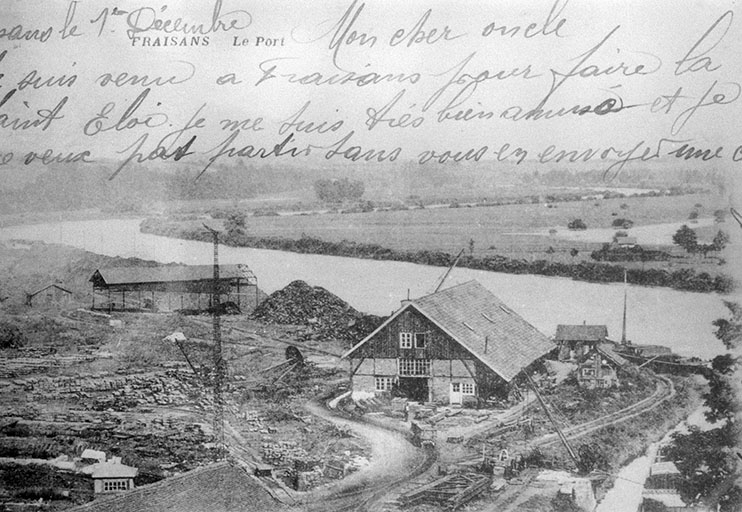 le 1er Décembre
FRAISANS Le Port
Mon cher oncle
suis venu a Fraisans pour faire la
Saint Eloi. je me suis très bien amusé et je
ne veux pas partir sans vous en envoyer une